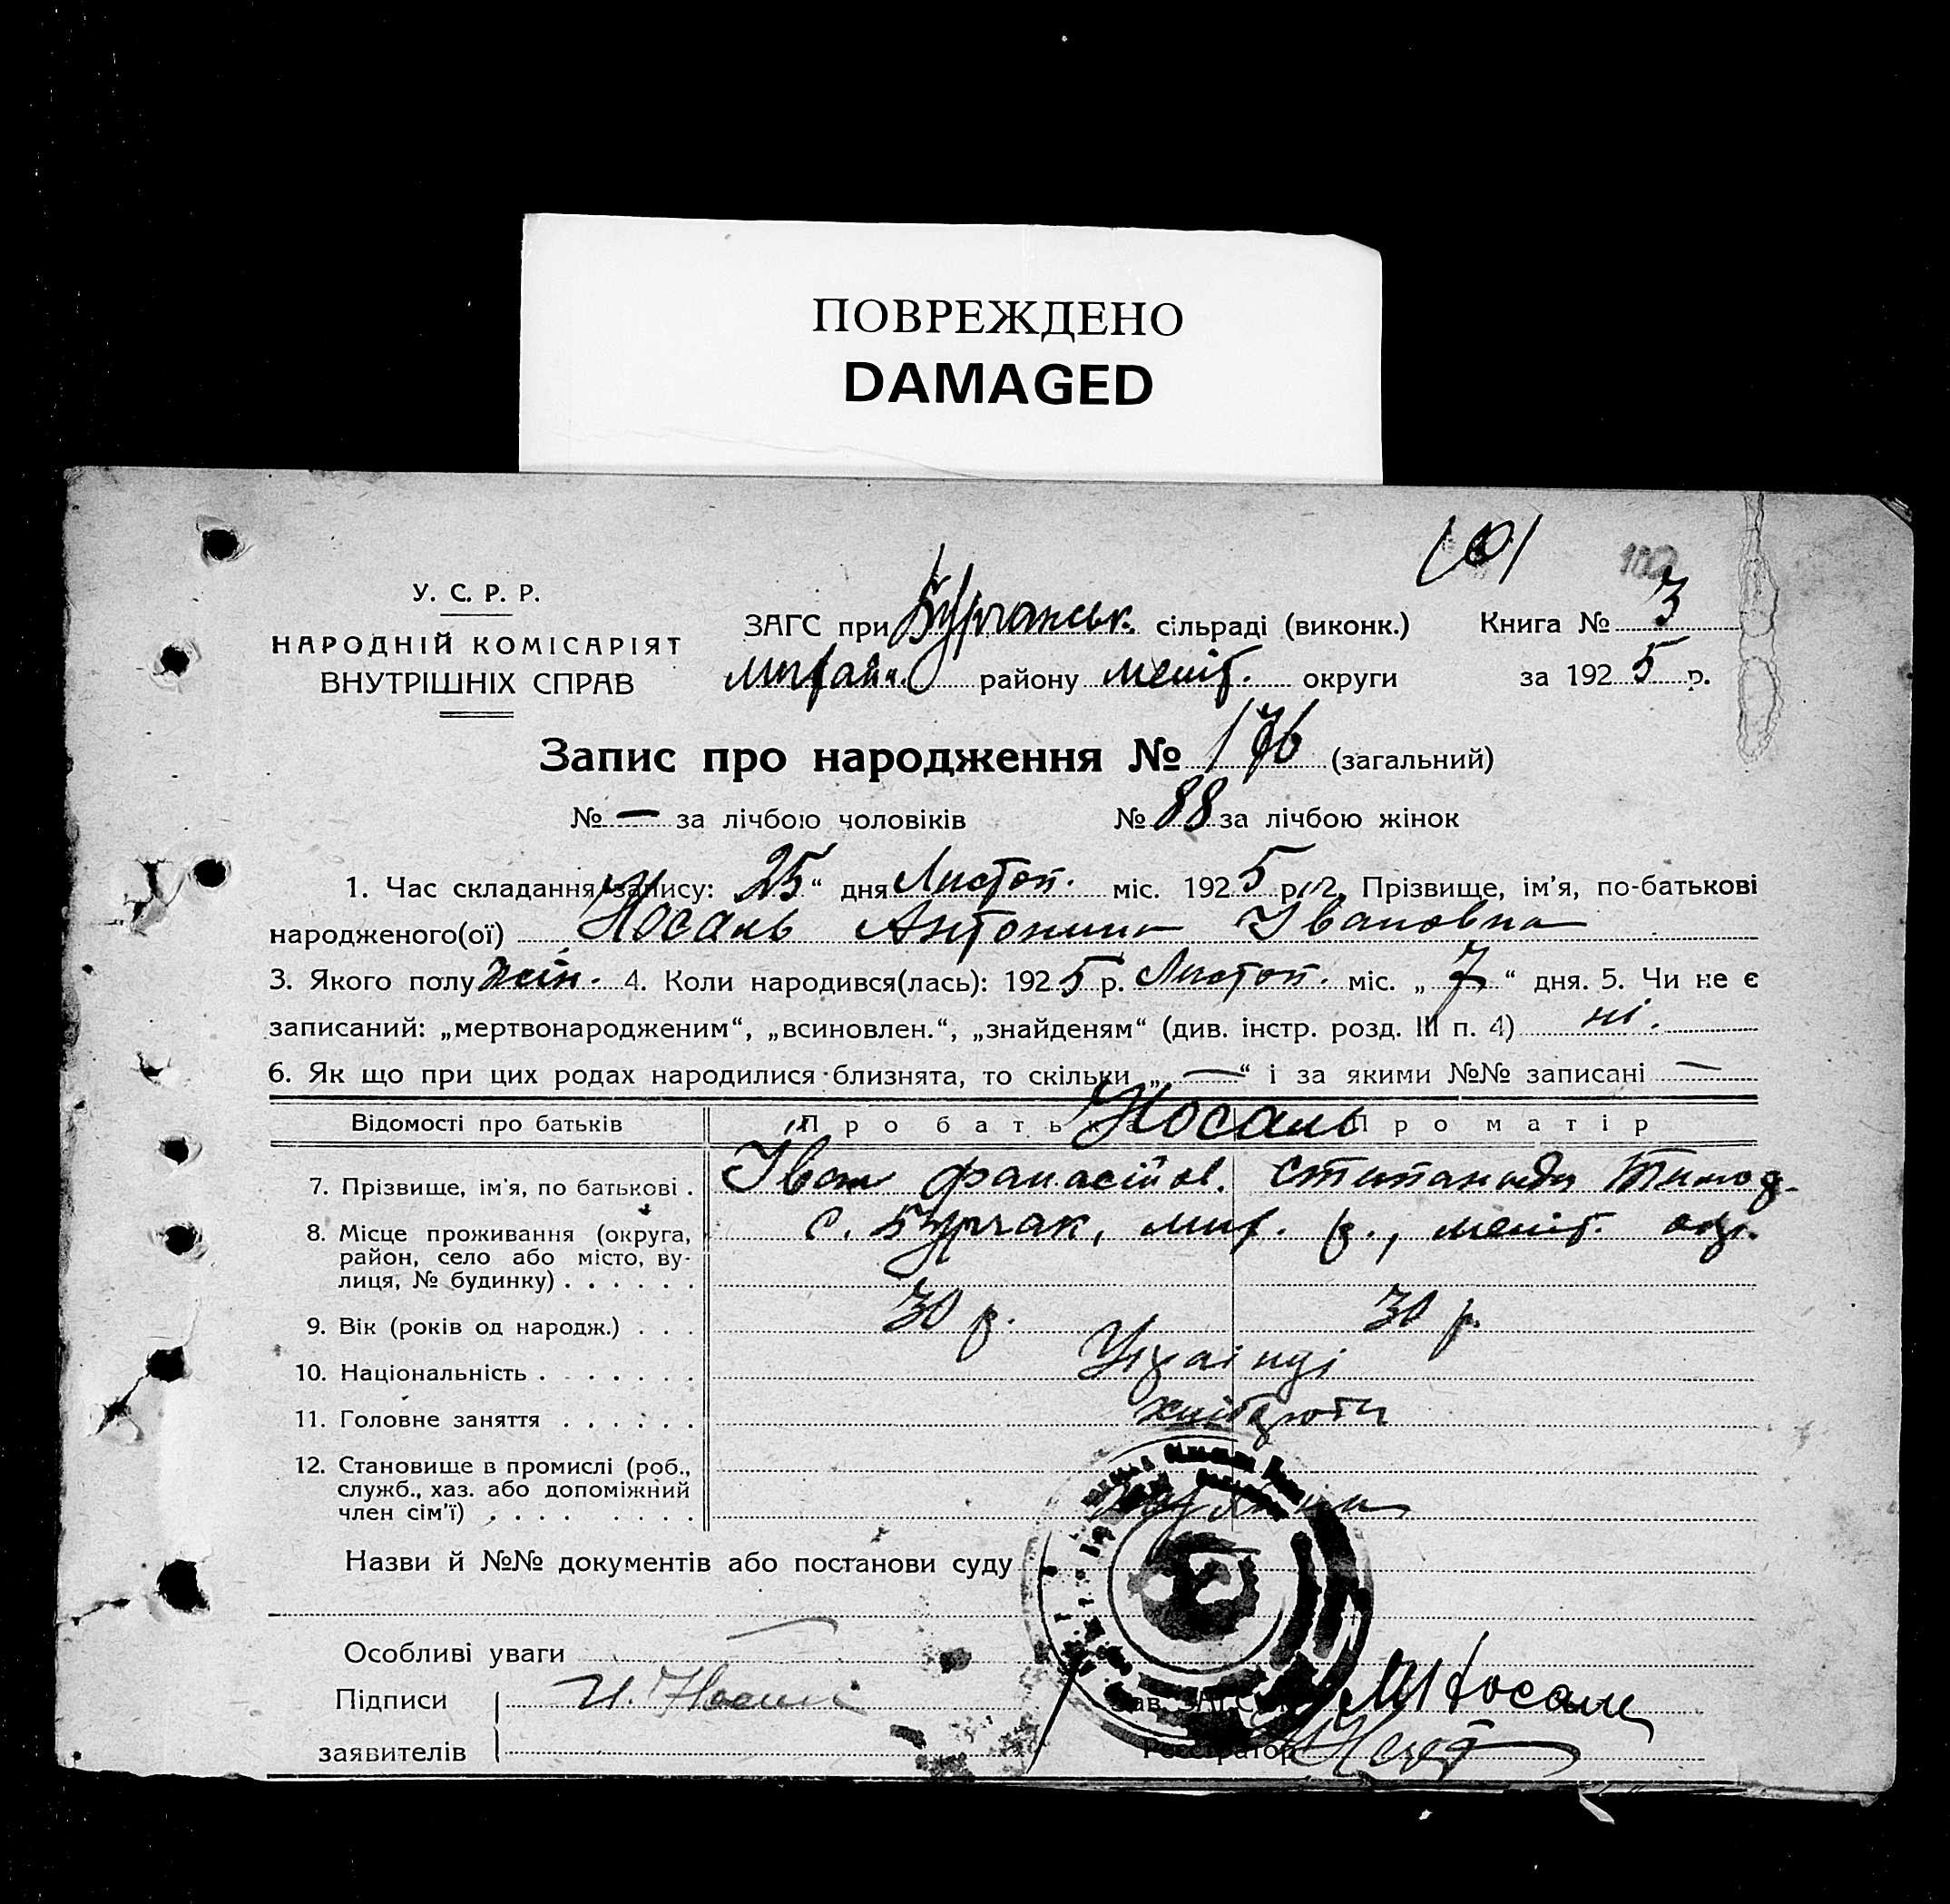 ПОВРЕЖДЕНО
DAMAGED
101
102
У. С. Р. Р.
НАРОДНІЙ КОМІСАРІЯТ
ВНУТРІШНІХ СПРАВ
ЗАГС при Бурчанськ. сільраді (виконк.)
району меліт. округи
Книга № 3
за 1925 р.
Запис про народження № 176 (загальний)
№ — за лічбою чоловіків № 88 за лічбою жінок
1. Час складання запису: 25“ дня Листоп. міс. 1925 р. 2. Прізвище, ім'я, по-батькові
народженого(ої) Носаль Антонина Івановна
3. Якого полу жін. 4. Коли народився(лась): 1925 р. Листоп. міс. „7“ дня. 5. Чи не є
записаний: „мертвонародженим“, „всиновлен.“, „знайденям“ (див. інстр. розд. III п. 4) ні.
6. Як що при цих родах народилися близнята, то скільки „—“ і за якими №№ записані —
Відомості про батьків Про батька Носаль Про матір
7. Прізвище, ім'я, по батькові . Іван
8. Місце проживання (округа,
район, село або місто, ву-
лиця, № будинку) . . . . . .
с. Бурчак, р., меліт. окр.
9. Вік (років од народж.) . . . 30 р. 30 р.
10. Національність . . . . . . . Українці
11. Головне заняття . . . . . . хлібороби
12. Становище в промислі (роб.,
служб., хаз. або допоміжний
член сім'ї) . . . . . . . .
Назви й №№ документів або постанови суду
Особливі уваги —
Підписи
заявителів
И. Носаль
Зав. ЗАГС'ом Носаль
Реєстратор